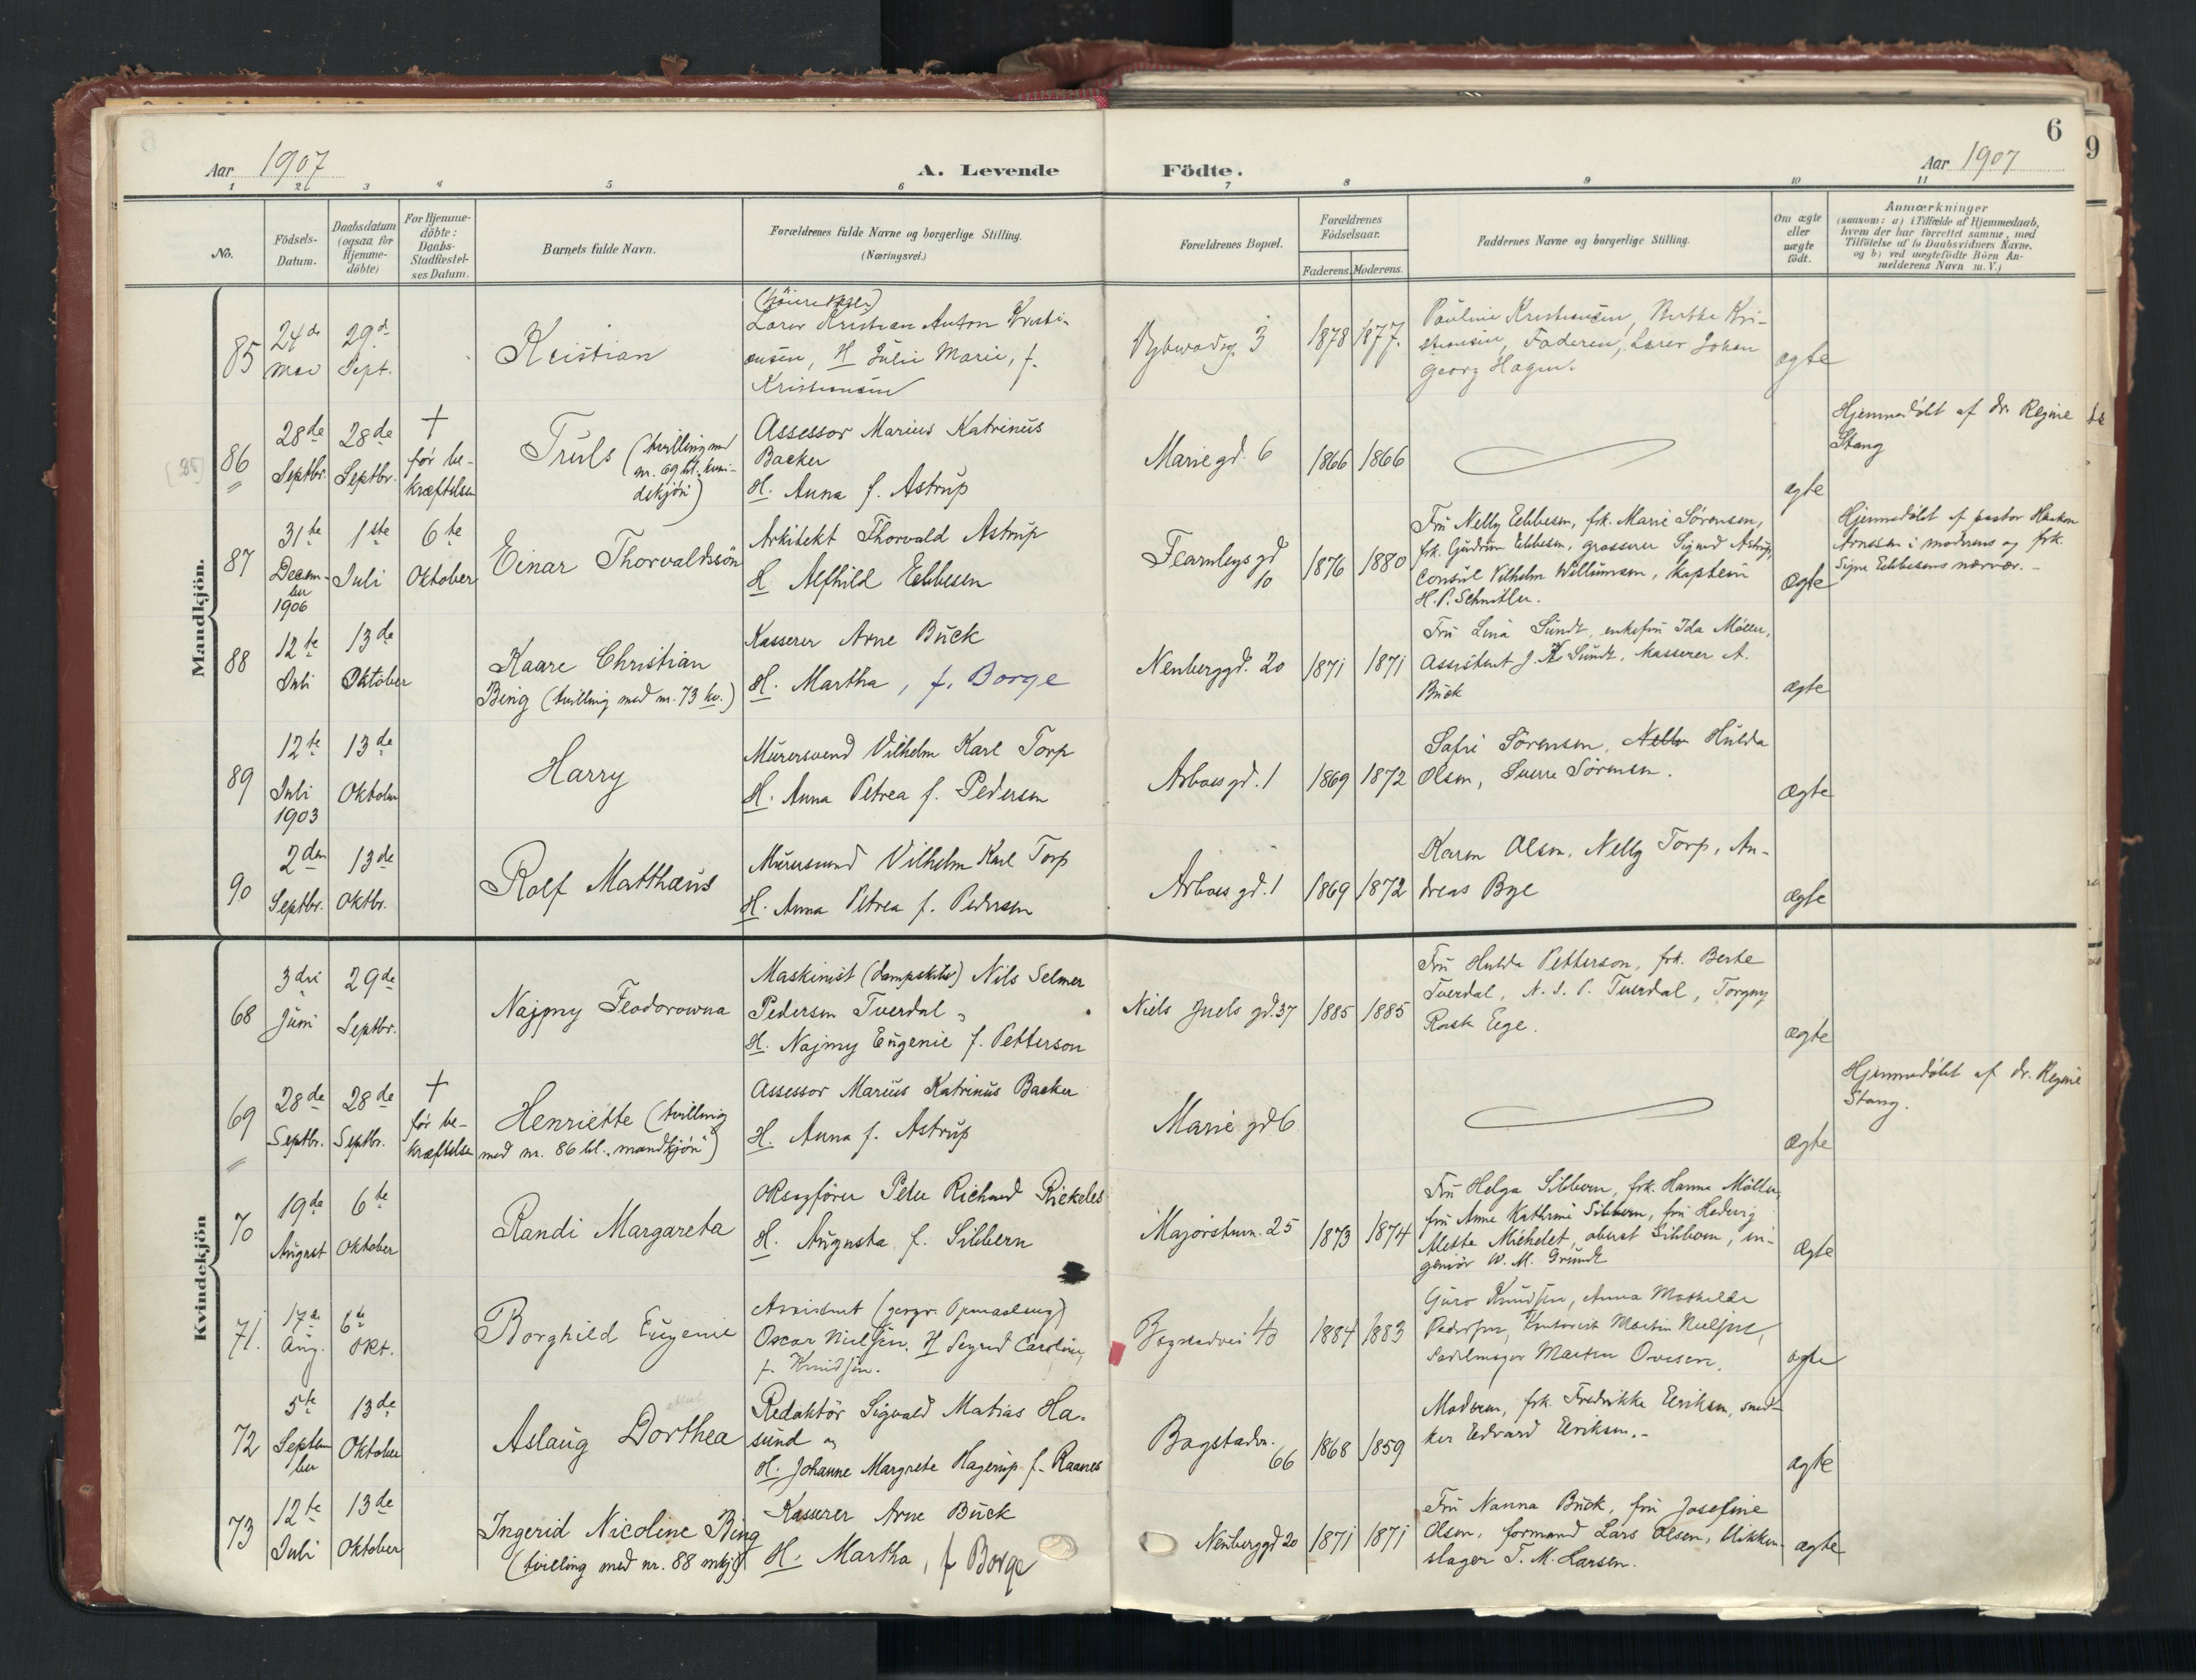 6
Aar 1907
A. Levende Födte.
Aar 1907
1 2 3 4 5 6 7 8 9 10 11
No.
Födsels-Datum.
Daabsdatum (ogsaa for Hjemme-döbte)
For Hjemme-döbte: Daabs-Stadfæstel-ses Datum.
Barnets fulde Navn.
Forældrenes fulde Navne og borgerlige Stilling. (Næringsvei.)
Forældrenes Bopæl.
Forældrenes Födselsaar.
Faderens. Moderens.
Faddernes Navne og borgerlige Stilling.
Om ægte eller uægte födt.
Anmærkninger
(saasom: a) i Tilfælde af Hjemmedaab,
hvem der har forrettet samme, med
Tilföielse af to Daabsvidners Navne,
og b) ved uægtefödte Börn An-
melderens Navn m. V.)
Mandkjön.
85
24de
Mai
29de
Sept.
Kristian
Kristian Anton Kristi-
ansen, H. Julie Marie, f.
Kristiansen
3
1878 1877.
Pauline Kristiansen, Berthe Kri-
stiansen, Faderen, Johan
Georg Hagen.
ægte
86
28de
Septbr.
28de
Septbr.
†
før be-
kræftelsen
Truls (tvilling med
nr. 69 litr. kvin-
dekjøn)
Assessor Marius Katrinus
Backer
H. Anna f. Astrup
Mariegd. 6
1866 1866
ægte
Hjemmedøbt af dr. Regine
Stang
87
31te
Decem-
ber
1906
1ste
Juli
6te
Oktober
Einar Thorvaldssøn
Arkitekt Thorvald Astrup
H. Alfhild Ebbesen
Fearnleys gd
10
1876 1880
Fru Nelly Ebbesen, frk. Marie Sørensen,
frk. Gudrun Ebbesen, grosserer Sigurd Astrup,
Consul Vilhelm Willumsen, kaptein
H. P. Schnitler.
ægte
Hjemmedøbt af pastor Haakon
Arnesen i moderens og frk.
Signe Ebbesens nærvær.
88
12te
Juli
13de
Oktober
Kaare Christian
Bing (tvilling med nr. 73 kv.)
Kasserer Arne Buck
H. Martha, f. Borge
Nenberggd. 20
1871 1871
Fru Lina Sundt, enkefru Ida Møller,
Assistent J. K. Sundt, Kasserer A.
Buck
ægte
89
12te
Juli
1903
13de
Oktober
Harry
Murersvend Vilhelm Karl Torp
H. Anna Petrea f. Pedersen
Arboes gd. 1
1869 1872
Sofie Sørensen, Nelly Hulda
Olsen, Sverre Sørensen.
ægte
90
2den
Septbr.
13de
Oktbr.
Rolf Matthæus
Murersvend Vilhelm Karl Torp
H. Anna Petrea f. Pedersen
Arboes gd. 1
1869 1872
Karen Olsen, Nelly Torp, An-
dreas Bye
ægte
Kvindekjön
68
3die
Juni
29de
Septbr.
Najmy Feodorowna
Maskinist (dampskibs) Nils Selmer
Pedersen Tverdal
H. Najmy Eugenie f. Petterson
Niels Juels gd. 37
1885 1885
Fru Hulda Petterson, frk. Berte
Tverdal, N. S. P. Tverdal, Torgny
Rask Eege.
ægte
69
28de
Septbr.
28de
Septbr.
†
før be-
kræftelse
Henriette (tvilling
med nr. 86 lit. mandkjøn)
Assessor Marius Katrinus Backer
H. Anna f. Astrup
Marie gd 6
ægte
Hjemmedøbt af dr. Regine
Stang.
70
19de
August
6te
Oktober
Randi Margareta
Oksagfører Peter Richard Riekeles
H. Augusta f. Sibbern
Majorstuv. 25
1873 1874
Fru Helga Sibbern, frk. Hanna Møller,
fru Anne Kathrine Sibbern, fru Hedevig
Alette Michelet, oberst Sibbern, in-
geniør W. M. Grundt
ægte
71.
17de
Aug.
6te
Okt.
Borghild Eugenie
Assistent (geogr. Opmaaling)
Oscar Nielsen, H. Sigrid Caroline,
f. Knudsen.
Bogstadvei 40
1884 1883
Guro Knudsen, Anna Mathilde
Pedersen, Kontorist Martin Nielsen,
Sadelmager Martin Ovesen.
ægte
72
5te
Septem-
ber
13de
Oktober
Aslaug Dorthea
Redaktør Sigvald Matias Ha-
sund og
H. Johanne Margrete Hagerup f. Raanes
Bogstadv.
66
1868 1859
Moderen, frk. Fredrikke Eriksen, sned-
ker Edvard Eriksen.
ægte
73
12te
Juli
13de
Oktober
Ingerid Nicoline Bing
(tvilling med nr. 88 mkj)
Kasserer Arne Buck
H. Martha, f Borge
Nenberggd 20
1871 1871
Fru Nanna Buck, fru Josefine
Olsen, formand Lars Olsen, blikken-
slager T. M. Larsen.
ægte
9